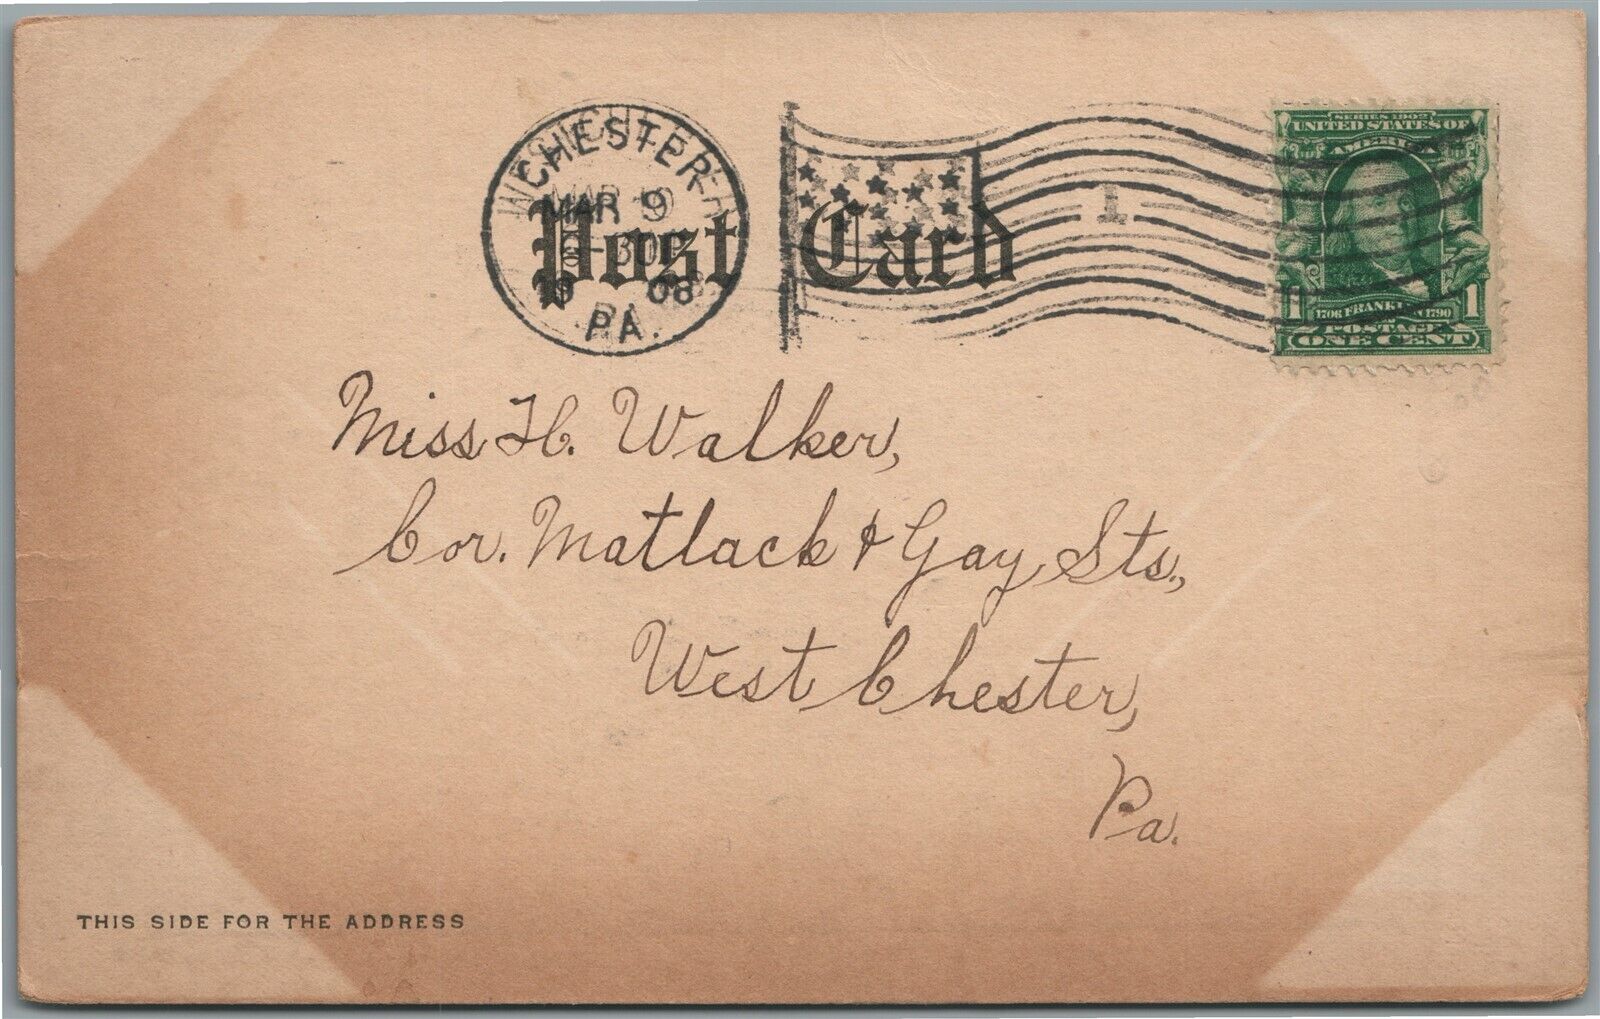 CHESTER
MAR 9
30
19 08
PA.
1
Post Card
SERIES 1902
UNITED STATES OF
AMERICA
1 1706 FRANKLIN 1790 1
POSTAGE
ONE CENT
Miss H. Walker,
Cor. Matlack & Gay Sts.,
West Chester,
Pa.
THIS SIDE FOR THE ADDRESS